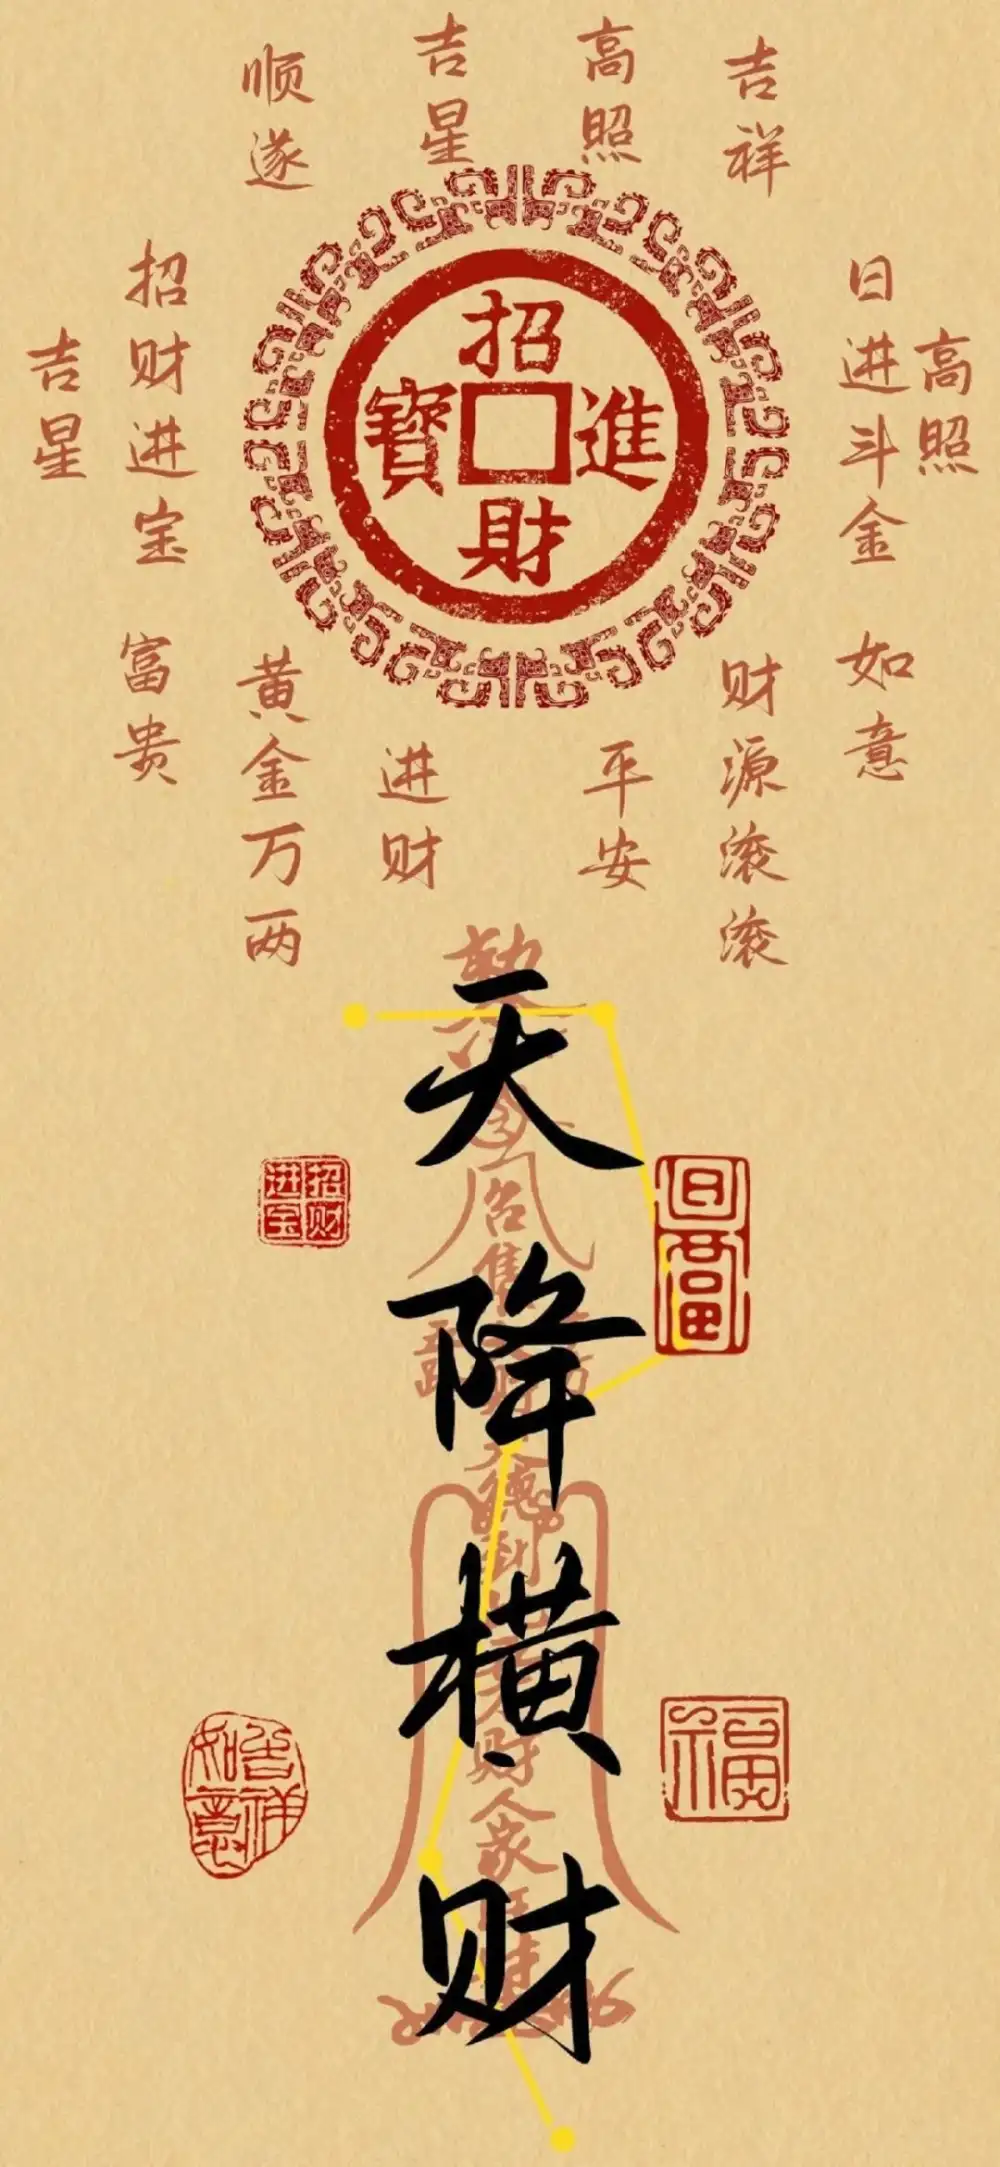 顺遂
吉星
高照
吉祥
吉星
招财进宝
日进斗金
高照
招財進寶
富贵
黄金万两
进财
平安
财源滚滚
如意
天降横财
招财进宝
日富
吉祥如意
福